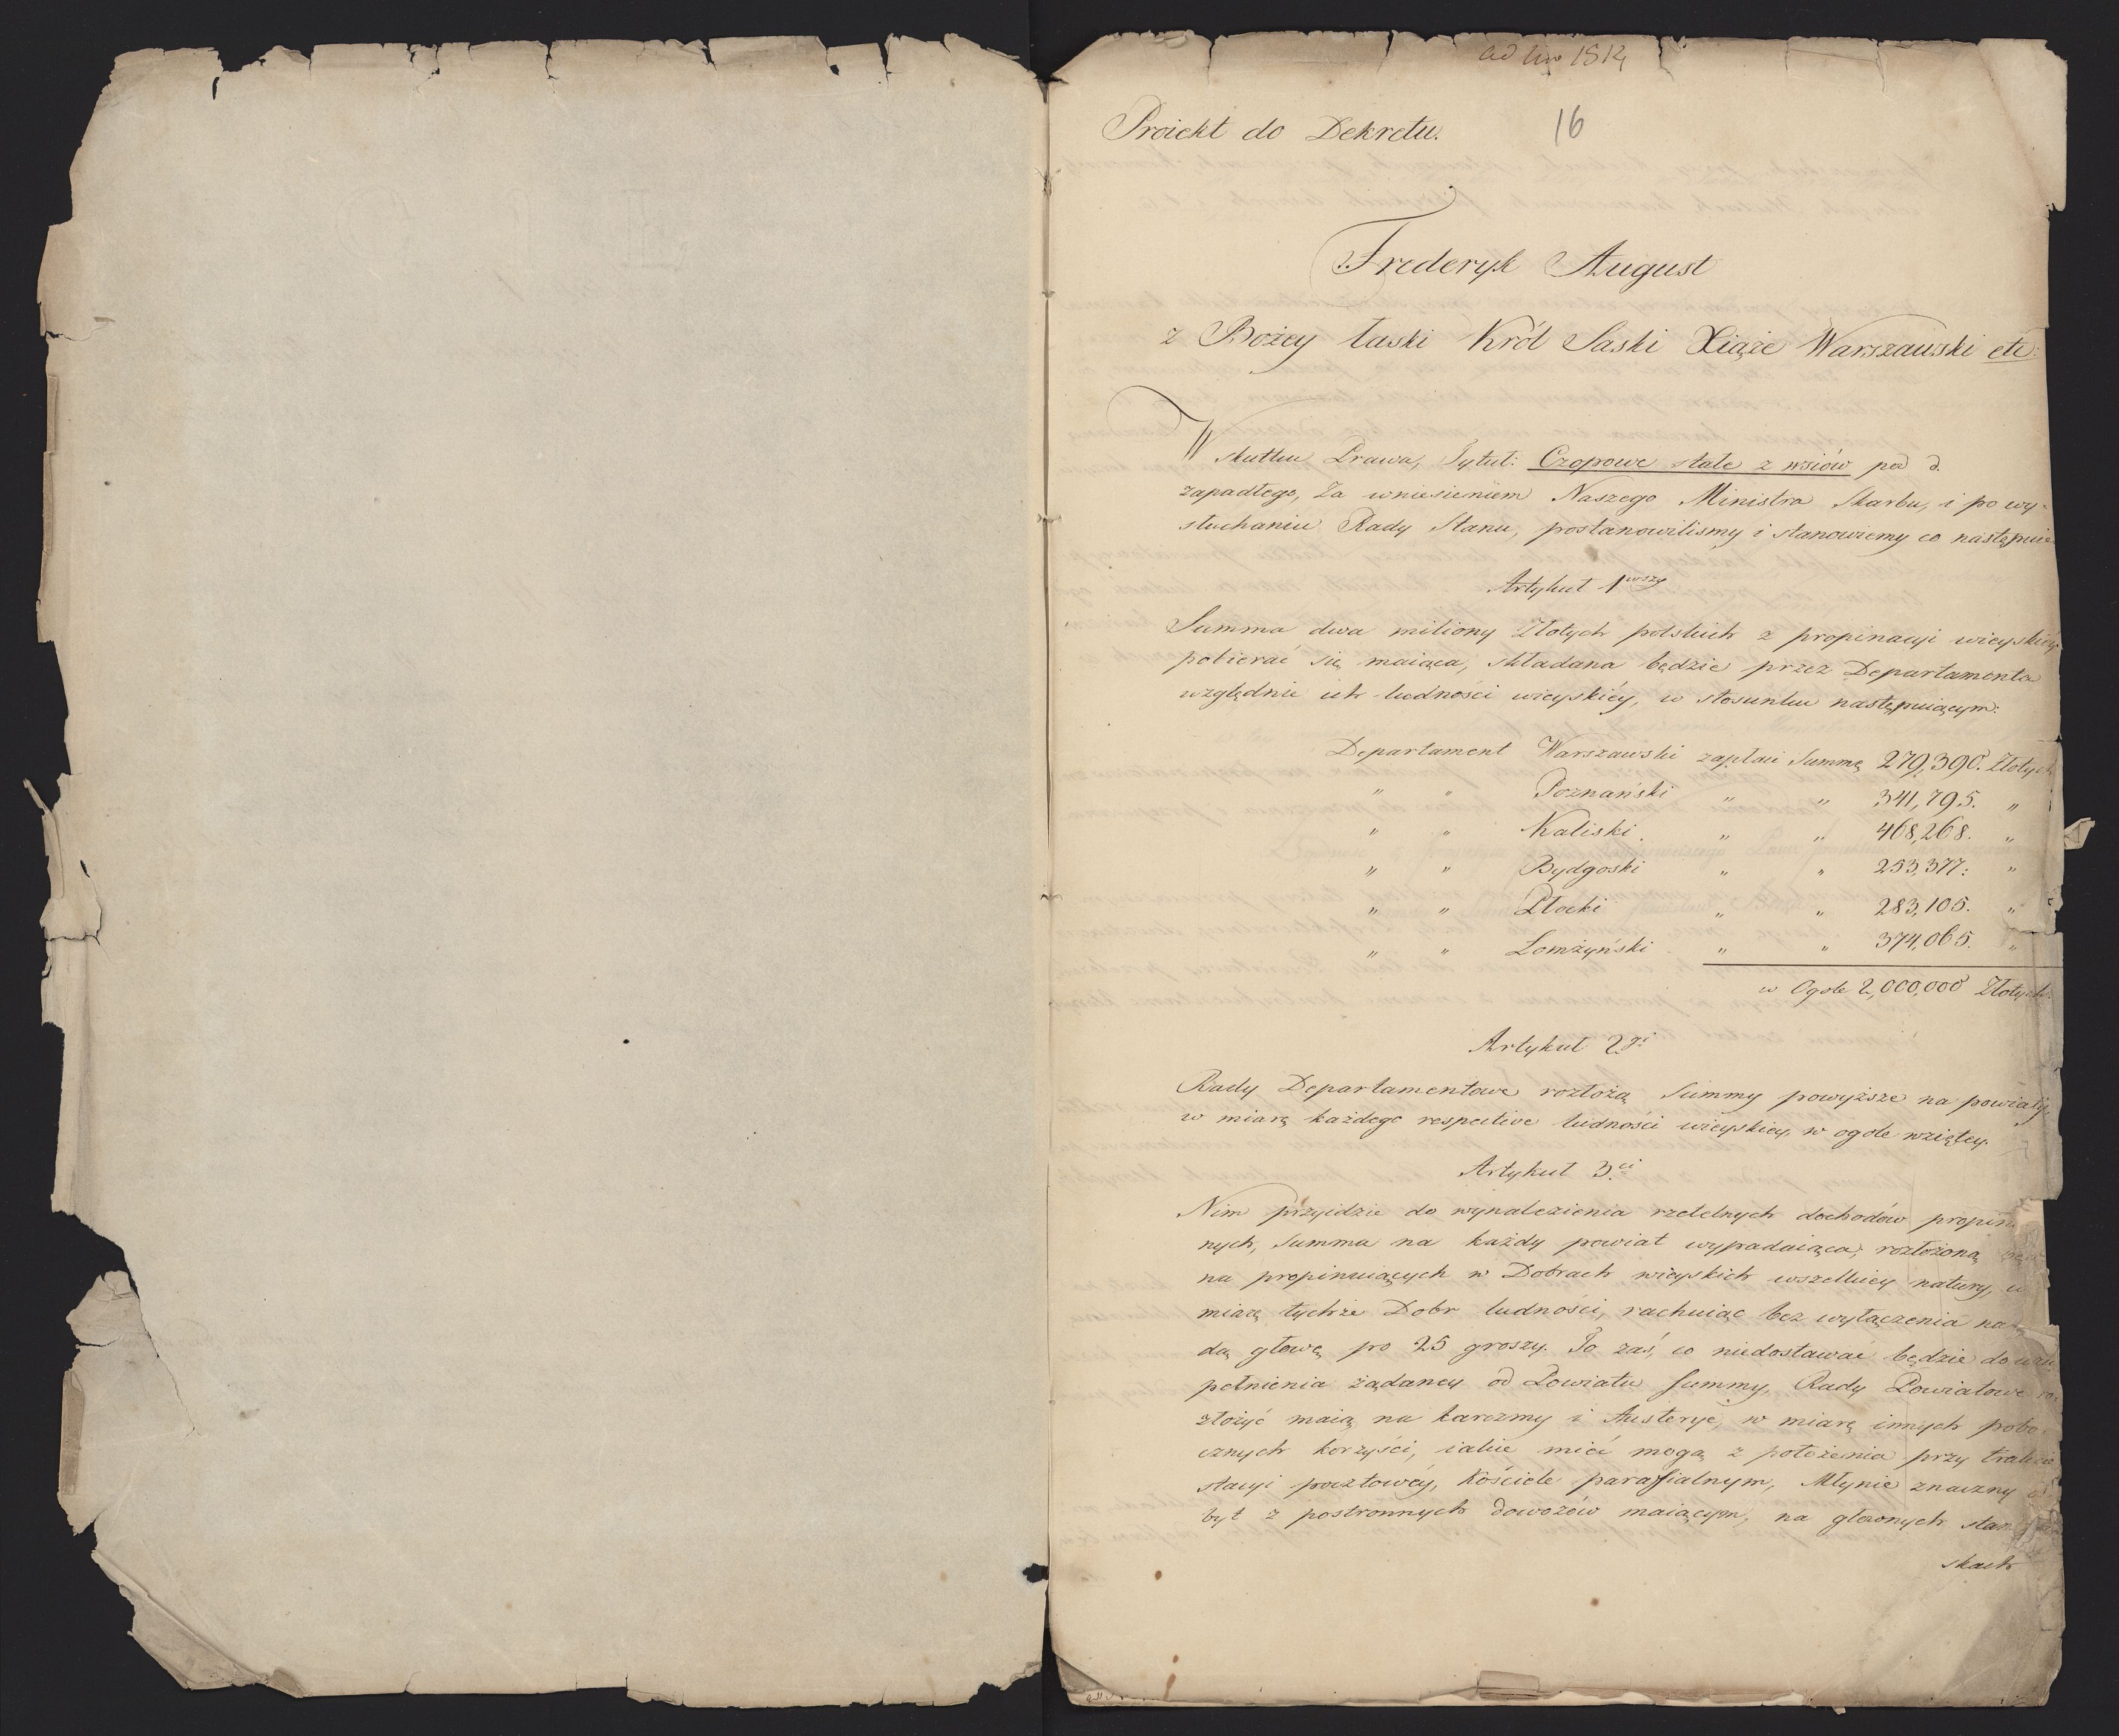 16
Proiekt do Dekretu.
Frederyk August
z Bożey łaski Król Saski Xiąże Warszawski etc:
W skutku Prawa, Tytuł: Czopowe stałe z wsiów pod d.
zapadłego, Za wniesieniem Naszego Ministra Skarbu, i po wy-
słuchaniu Rady Stanu, postanowilismy i stanowiemy co następuie
Artykuł 1wszy
Summa dwa miliony Złotych polskich z propinacyi wieyskiéy
pobierać się maiąca, składana będzie przez Departamenta
względnie ich ludności wieyskiéy, w stosunku następuiącym:
Departament Warszawski zapłaci Summę 279,390. Złotych
" " Poznański " " 341,795. "
" " Kaliski. " " 468,268. "
" " Bydgoski " " 253,377: "
" " Płocki " " 283,105. "
" " Łomżyński " " 374,065. "
w Ogole 2,000,000 Złotych.
Artykuł 2gi
Rady Departamentowe rozłożą Summy powyższe na powiaty
w miarę każdego respective ludności wieyskiey, w ogole wziętey.
Artykuł 3ci
Nim przyidzie do wynalezienia rzetelnych dochodów propin
nych, Summa na każdy powiat wypadaiąca, rozłożoną
na propinuiących w Dobrach wieyskich wszelkiey natury, w
miarę tychże Dobr ludności, rachuiąc bez wyłączenia na
dą głowę po 25 groszy. To zaś, co niedostawać będzie do uzu
pełnienia żądaney od Powiatu Summy, Rady Powiatowe ro
złożyć maią na karczmy i Austerye, w miarę innych pobo
cznych korzyści, iakie mieć mogą z położenia przy trakcie
stacyi pocztowéy, Kościele paraffialnym, Młynie znaczny od
byt z postronnych dowozów maiącym, na głównych stan
skach